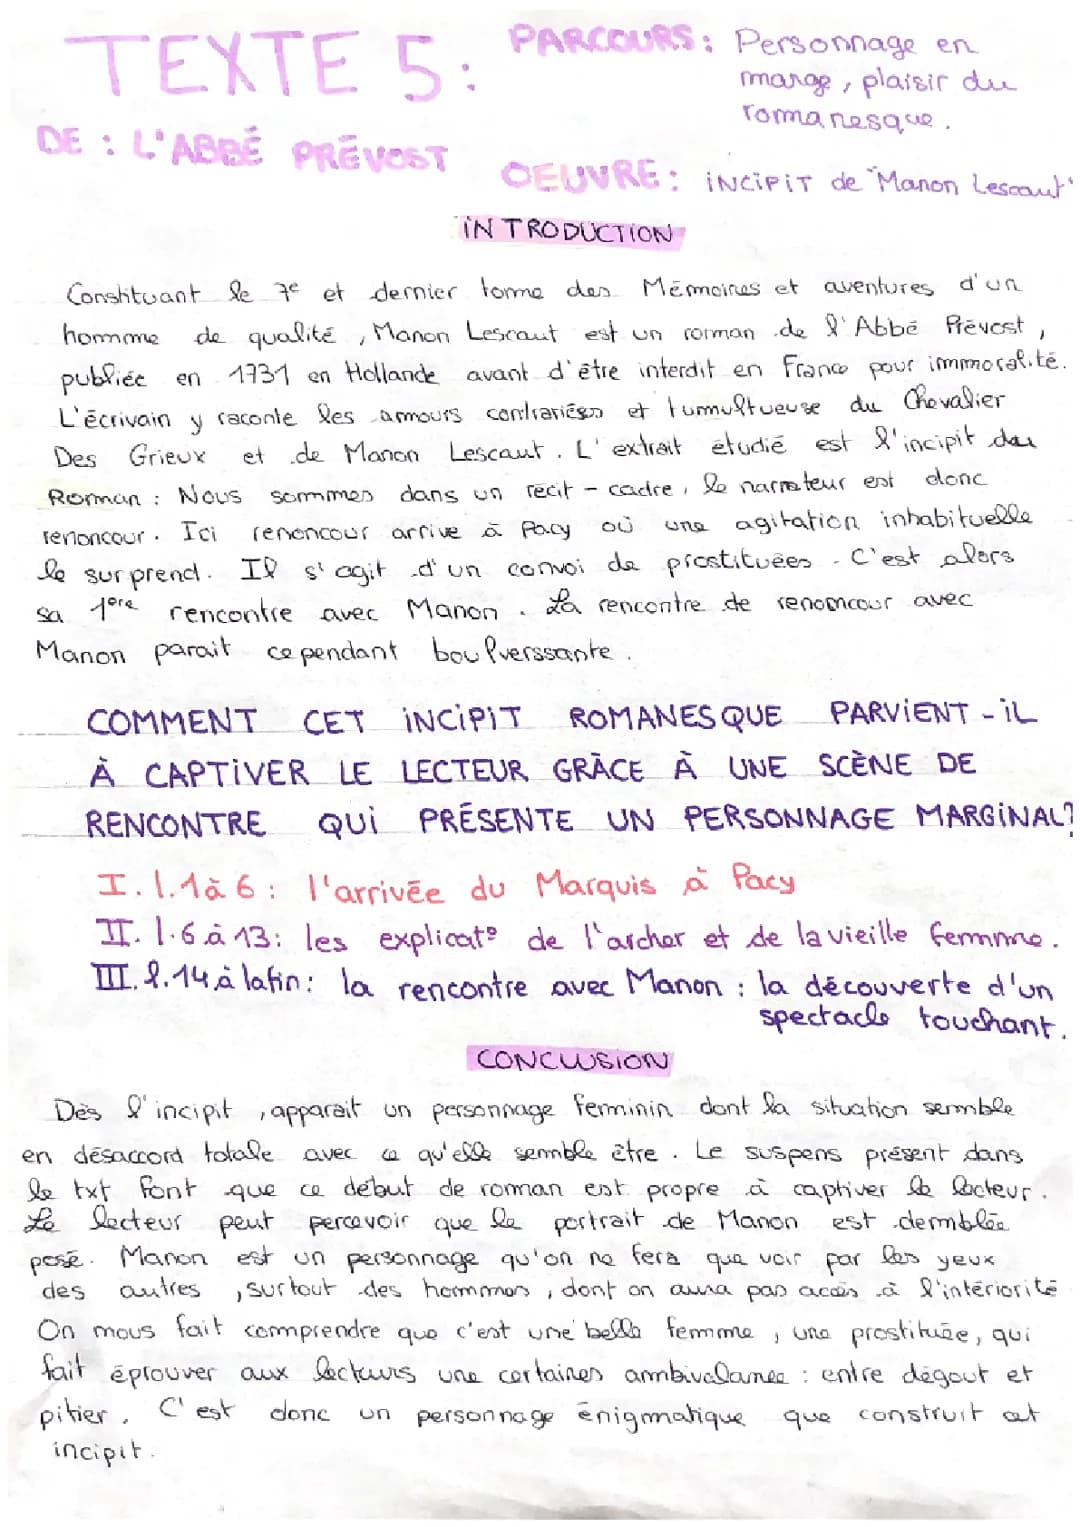 TEXTE 5:
PARCOURS: Personnage en
marge, plaisir du
romanesque.
DE : L'ABBÉ PRÉVOST
OEUVRE: INCIPIT de "Manon Lescaut"
INTRODUCTION
Constituant le 7e et dernier tome des Mémoires et aventures d'un
homme de qualité, Manon Lescaut est un roman de l'Abbé Prévost,
publiée en 1731 en Hollande avant d'être interdit en France pour immoralité.
L'écrivain y raconte les amours contrariées et tumultueuse du Chevalier
Des Grieux et de Manon Lescaut. L'extrait étudié est l'incipit du
Roman : Nous sommes dans un récit-cadre, le narrateur est donc
renoncour. Ici renoncour arrive à Pacy où une agitation inhabituelle
le surprend. Il s'agit d'un convoi de prostituées. C'est alors
sa 1ère rencontre avec Manon. La rencontre de renoncour avec
Manon parait cependant boulverssante.
COMMENT CET INCIPIT ROMANESQUE PARVIENT-IL
À CAPTIVER LE LECTEUR GRÂCE À UNE SCÈNE DE
RENCONTRE QUI PRÉSENTE UN PERSONNAGE MARGINAL?
I. l.1à 6: l'arrivée du Marquis à Pacy
II. l.6 à 13: les explicat° de l'archer et de la vieille femme.
III. l.14 à la fin: la rencontre avec Manon : la découverte d'un
spectacle touchant.
CONCLUSION
Dès l'incipit, apparait un personnage féminin dont la situation semble
en désaccord totale avec ce qu'elle semble être. Le suspens présent dans
le txt font que ce début de roman est propre à captiver le lecteur.
Le lecteur peut percevoir que le portrait de Manon est d'emblée
posé. Manon est un personnage qu'on ne fera que voir par les yeux
des autres, surtout des hommes, dont on aura pas accès à l'intériorité
On nous fait comprendre que c'est une belle femme, une prostituée, qui
fait éprouver aux lecteurs une certaines ambivalance : entre dégout et
pitier. C'est donc un personnage énigmatique que construit cet
incipit.